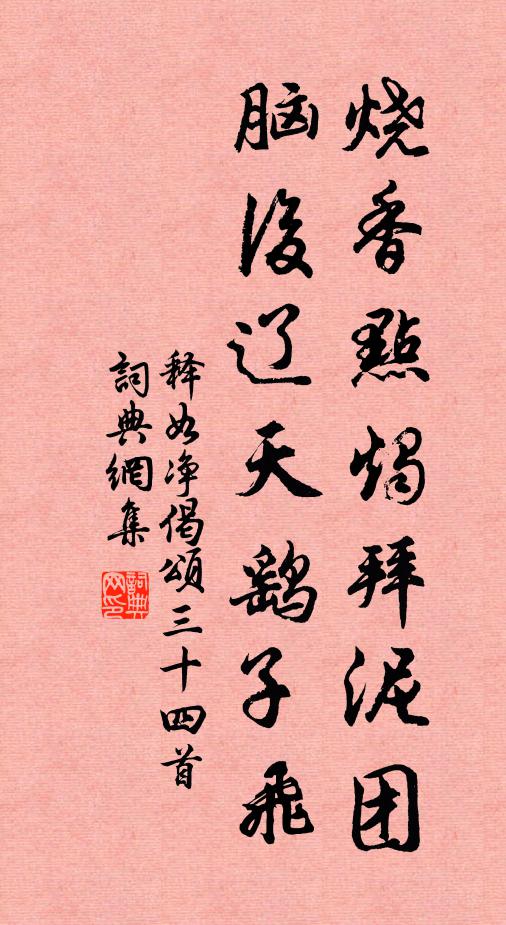 烧香點烛拜泥团
脑後辽天鹞子飛
释如净偈頌三十四首
詞典網集
詞典网印